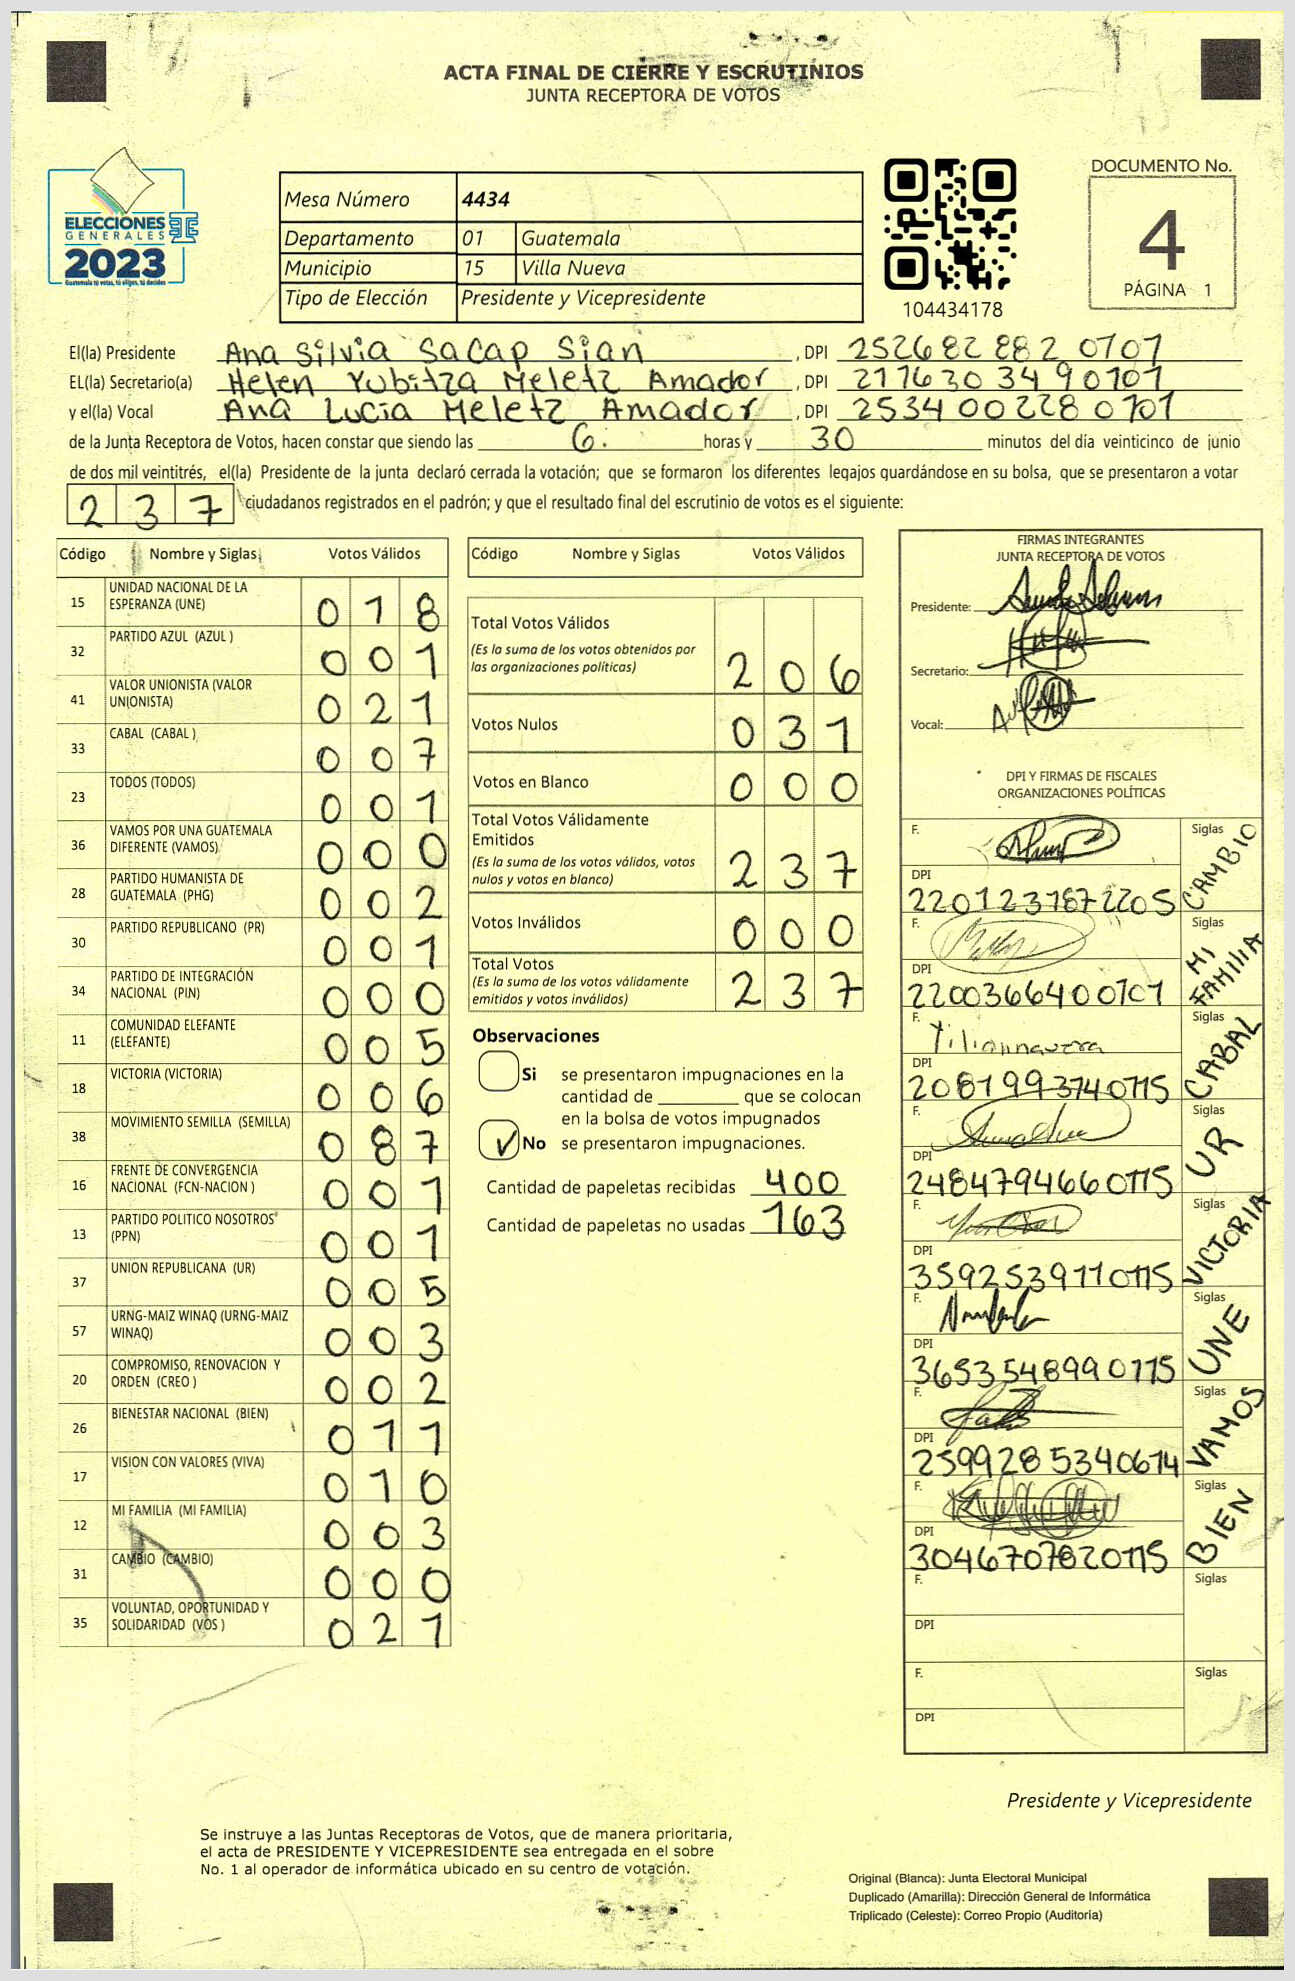 ACTA FINAL DE CIERRE Y ESCRUTINIOS
JUNTA RECEPTORA DE VOTOS
ELECCIONES
GENERALES
2023
Guatemala tú votas, tú eliges, tú decides
Mesa Número 4434
Departamento 01 Guatemala
Municipio 15 Villa Nueva
Tipo de Elección Presidente y Vicepresidente
104434178
DOCUMENTO No.
4
PÁGINA 1
El(la) Presidente Ana Silvia Sacap Sian, DPI 252682882 0101
EL(la) Secretario(a) Helen Yubitza Meletz Amador, DPI 217630349 0101
y el(la) Vocal Ana Lucia Meletz Amador, DPI 253400228 0101
de la Junta Receptora de Votos, hacen constar que siendo las 6. horas y 30 minutos del día veinticinco de junio
de dos mil veintitrés, el(la) Presidente de la junta declaró cerrada la votación; que se formaron los diferentes legajos guardándose en su bolsa, que se presentaron a votar
237 ciudadanos registrados en el padrón; y que el resultado final del escrutinio de votos es el siguiente:
Código Nombre y Siglas Votos Válidos
15 UNIDAD NACIONAL DE LA ESPERANZA (UNE) 018
32 PARTIDO AZUL (AZUL ) 001
41 VALOR UNIONISTA (VALOR UNIONISTA) 021
33 CABAL (CABAL ) 007
23 TODOS (TODOS) 001
36 VAMOS POR UNA GUATEMALA DIFERENTE (VAMOS) 000
28 PARTIDO HUMANISTA DE GUATEMALA (PHG) 002
30 PARTIDO REPUBLICANO (PR) 001
34 PARTIDO DE INTEGRACIÓN NACIONAL (PIN) 000
11 COMUNIDAD ELEFANTE (ELEFANTE) 005
18 VICTORIA (VICTORIA) 006
38 MOVIMIENTO SEMILLA (SEMILLA) 087
16 FRENTE DE CONVERGENCIA NACIONAL (FCN-NACION ) 001
13 PARTIDO POLITICO NOSOTROS (PPN) 001
37 UNION REPUBLICANA (UR) 005
57 URNG-MAIZ WINAQ (URNG-MAIZ WINAQ) 003
20 COMPROMISO, RENOVACION Y ORDEN (CREO ) 002
26 BIENESTAR NACIONAL (BIEN) 011
17 VISION CON VALORES (VIVA) 010
12 MI FAMILIA (MI FAMILIA) 003
31 CAMBIO (CAMBIO) 000
35 VOLUNTAD, OPORTUNIDAD Y SOLIDARIDAD (VOS ) 021
Código Nombre y Siglas Votos Válidos
Total Votos Válidos
(Es la suma de los votos obtenidos por
las organizaciones políticas) 206
Votos Nulos 031
Votos en Blanco 000
Total Votos Válidamente
Emitidos
(Es la suma de los votos válidos, votos
nulos y votos en blanco) 237
Votos Inválidos 000
Total Votos
(Es la suma de los votos válidamente
emitidos y votos inválidos) 237
Observaciones
Si se presentaron impugnaciones en la
cantidad de ________ que se colocan
en la bolsa de votos impugnados
No se presentaron impugnaciones.
Cantidad de papeletas recibidas 400
Cantidad de papeletas no usadas 163
FIRMAS INTEGRANTES
JUNTA RECEPTORA DE VOTOS
Presidente:
Secretario:
Vocal:
DPI Y FIRMAS DE FISCALES
ORGANIZACIONES POLÍTICAS
F. Siglas CAMBIO
DPI
2201231872205
F. Siglas MI FAMILIA
DPI
2200366400101
F. Siglas CABAL
DPI
2081993740115
F. Siglas UR
DPI
2484794660115
F. Siglas VICTORIA
DPI
3592539110115
F. Siglas UNE
DPI
3653548990115
F. Siglas VAMOS
DPI
2599285340614
F. Siglas BIEN
DPI
3046707820115
F. Siglas
DPI
F. Siglas
DPI
Presidente y Vicepresidente
Se instruye a las Juntas Receptoras de Votos, que de manera prioritaria,
el acta de PRESIDENTE Y VICEPRESIDENTE sea entregada en el sobre
No. 1 al operador de informática ubicado en su centro de votación.
Original (Blanca): Junta Electoral Municipal
Duplicado (Amarilla): Dirección General de Informática
Triplicado (Celeste): Correo Propio (Auditoría)